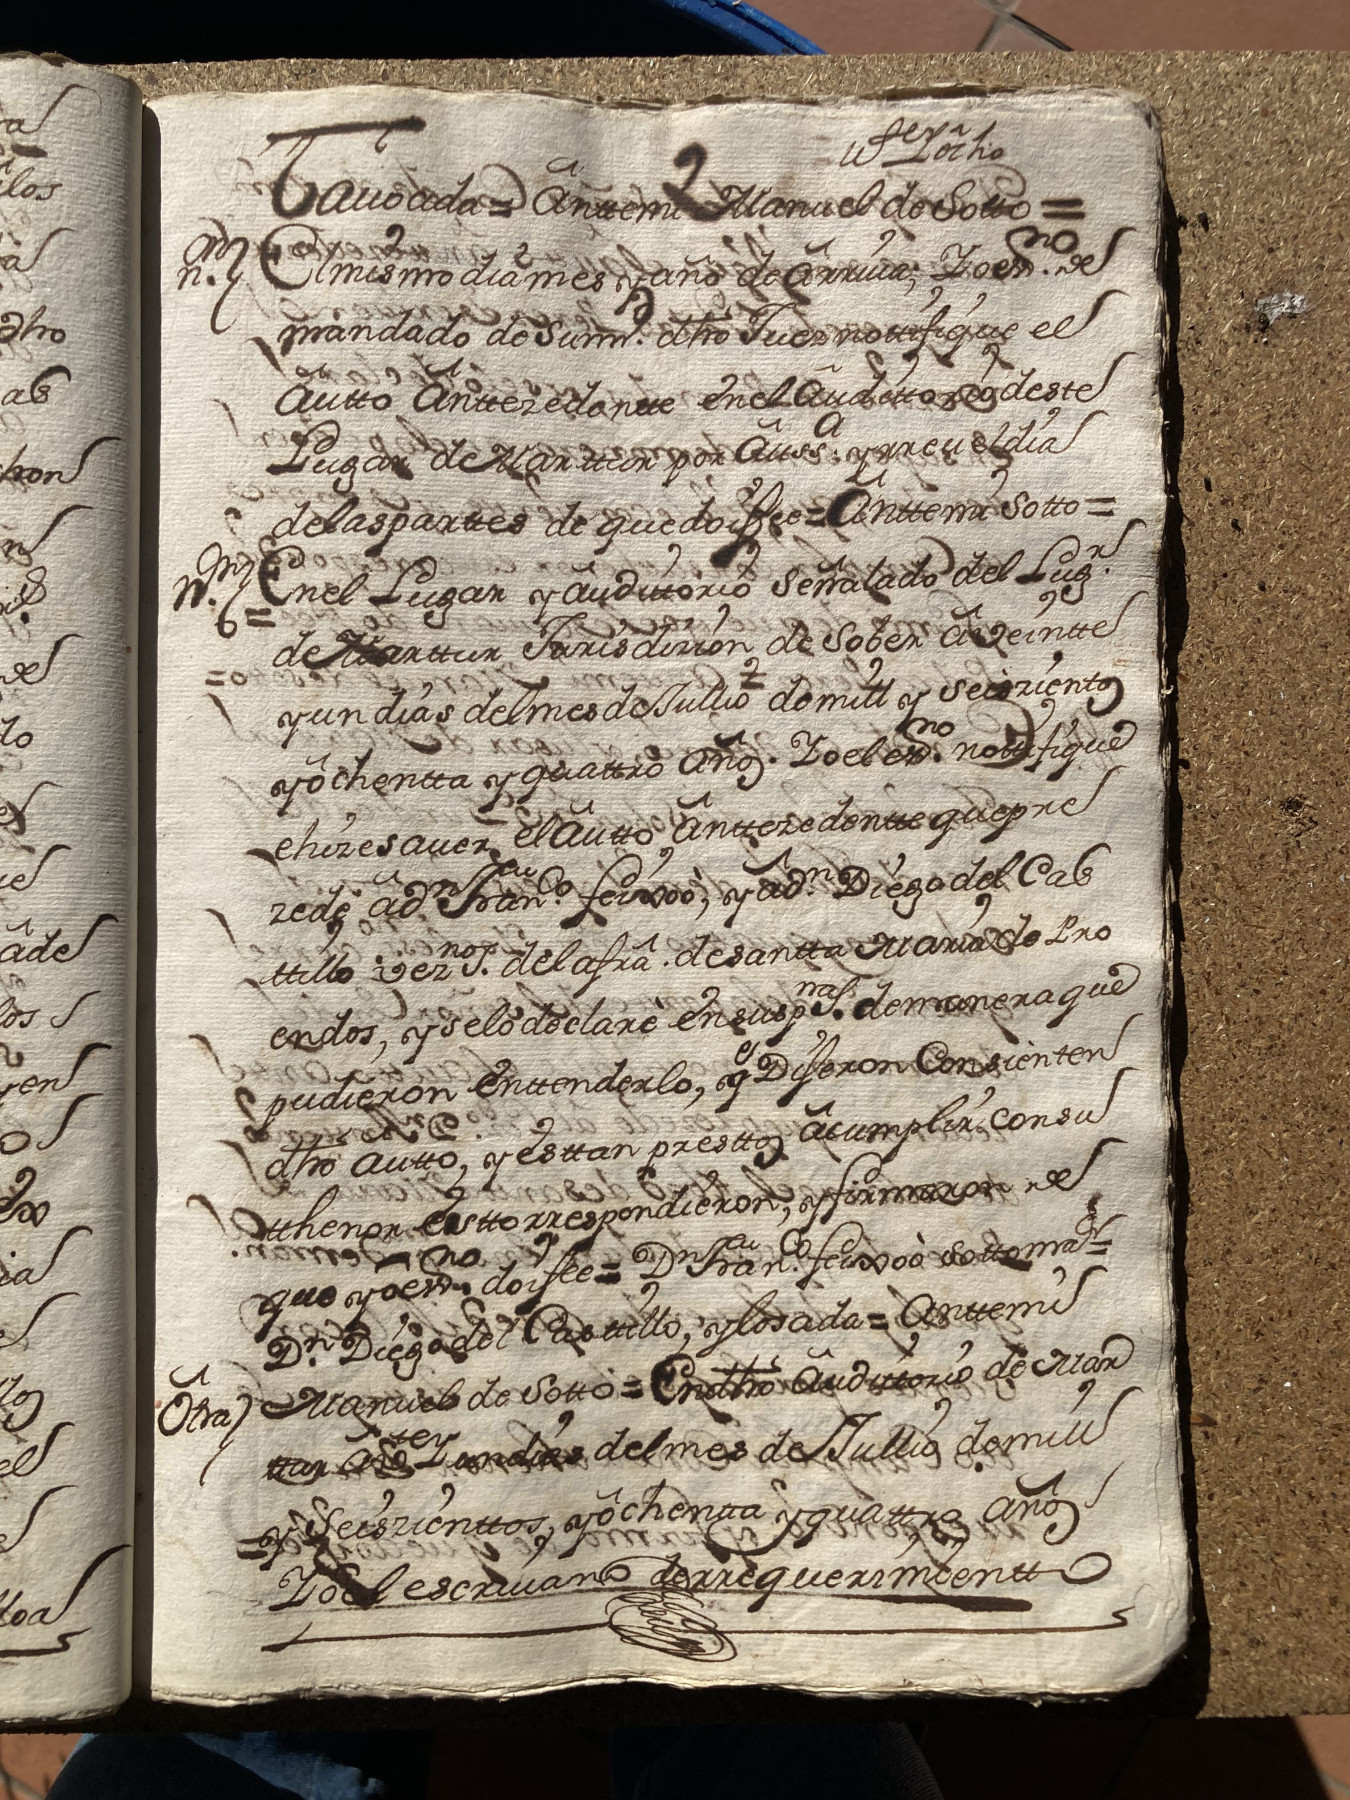 Tauoada = Anttemi Manuel de Sotto =
El mismo dia mes y año de Arriua, Yo essno. de
mandado de sumrd. dho Juez nottifique el
Autto Anttezedentte en el Auditorio deste
Lugar de Marttin por Aussa. y rreueldia
de las parttes de que doi ffee = Anttemi Sotto =
En el Lugar y auditorio señalado del Lugr.
de Marttin Jurisdizion de Sober a veintte
y un dias del mes de Jullio de mill y seiszientos
y ochentta y quattro años. Yo el essno. nottifique
e hize sauer el Autto Anttezedentte que pre
zede a dn Franco. feixoo, y a dn. Diego del Cas
ttillo veznos. de la fra. de santta Maria de Pro
endos, y se lo declare en sus pnas. de manera que
pudieron enttenderlo, q Dijeron Consienten
dho autto, y esttan presttos a cumplir con su
tthenor estto rrespondieron, y firmaron de
que yo essno. doi ffee = Dn Franco. feixoo sottomar =
Dn. Diego del Casttillo, y losada = Anttemi
Manuel de Sotto = En dho Auditorio de Mar
ttin dho dias del mes de Jullio de mill
y Seiszienttos, y ochentta y quattro años
Yo el escriuano de rrequerimientto
Otra